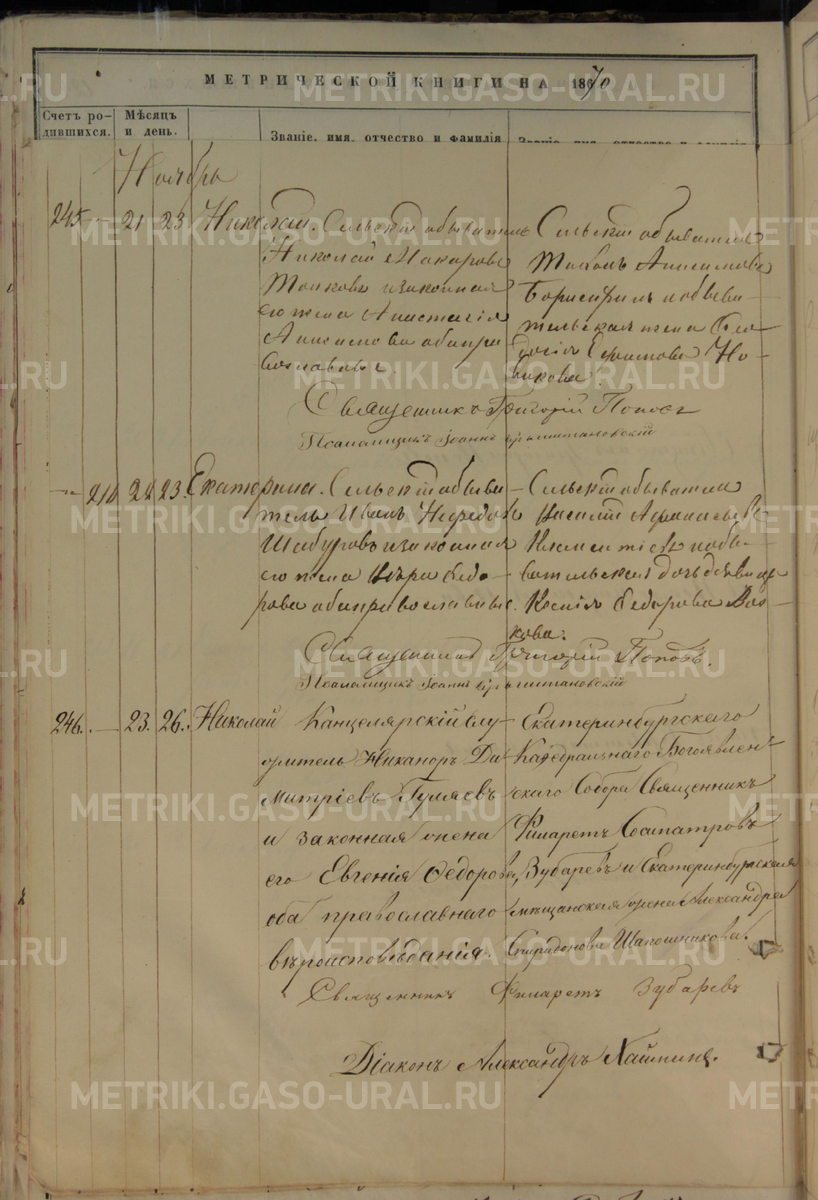 МЕТРИЧЕСКОЙ КНИГИ НА 1870
Счетъ ро-
дившихся.
Мѣсяцъ
и день.
Званіе, имя, отчество и фамилія
Званіе, имя, отчество и фамилія
Ноябрь
245 — 21 23 Николай. Сельскій обыватель
Николай Макаровъ
и законная
его жена Анастасія
Анисимова оба пра-
вославные.
Сельскій обыватель
Анисимовъ
и обыва-
тельская жена Ѳео-
досія Но-
викова.
Священникъ Григорій Поповъ
Псаломщикъ Іоаннъ
— 210 22 23. Екатерина. Сельскій обыва-
тель Иванъ
Шабуровъ и законная
его жена Вѣра Ѳедо-
рова оба православные.
Сельскій обыватель
Василій Аѳанасьевъ
и обы-
вательская дочь девица
Ксенія Ѳедорова Вол-
кова.
Священникъ Григорій Поповъ.
Псаломщикъ Іоаннъ
246. — 23. 26. Николай Канцелярскій слу-
житель Никаноръ Ди-
митріевъ Гуляевъ
и законная жена
его Евгенія Ѳедорова,
оба православнаго
вѣроисповѣданія.
Екатеринбургскаго
Каѳедральнаго Богоявлен-
скаго Собора Священникъ
Филаретъ Сосипатровъ
Зубаревъ и Екатеринбургская
мѣщанская жена Александра
Спиридонова Шапошникова.
Священникъ Филаретъ Зубаревъ
Діаконъ Александръ
METRIKI.GASO-URAL.RU